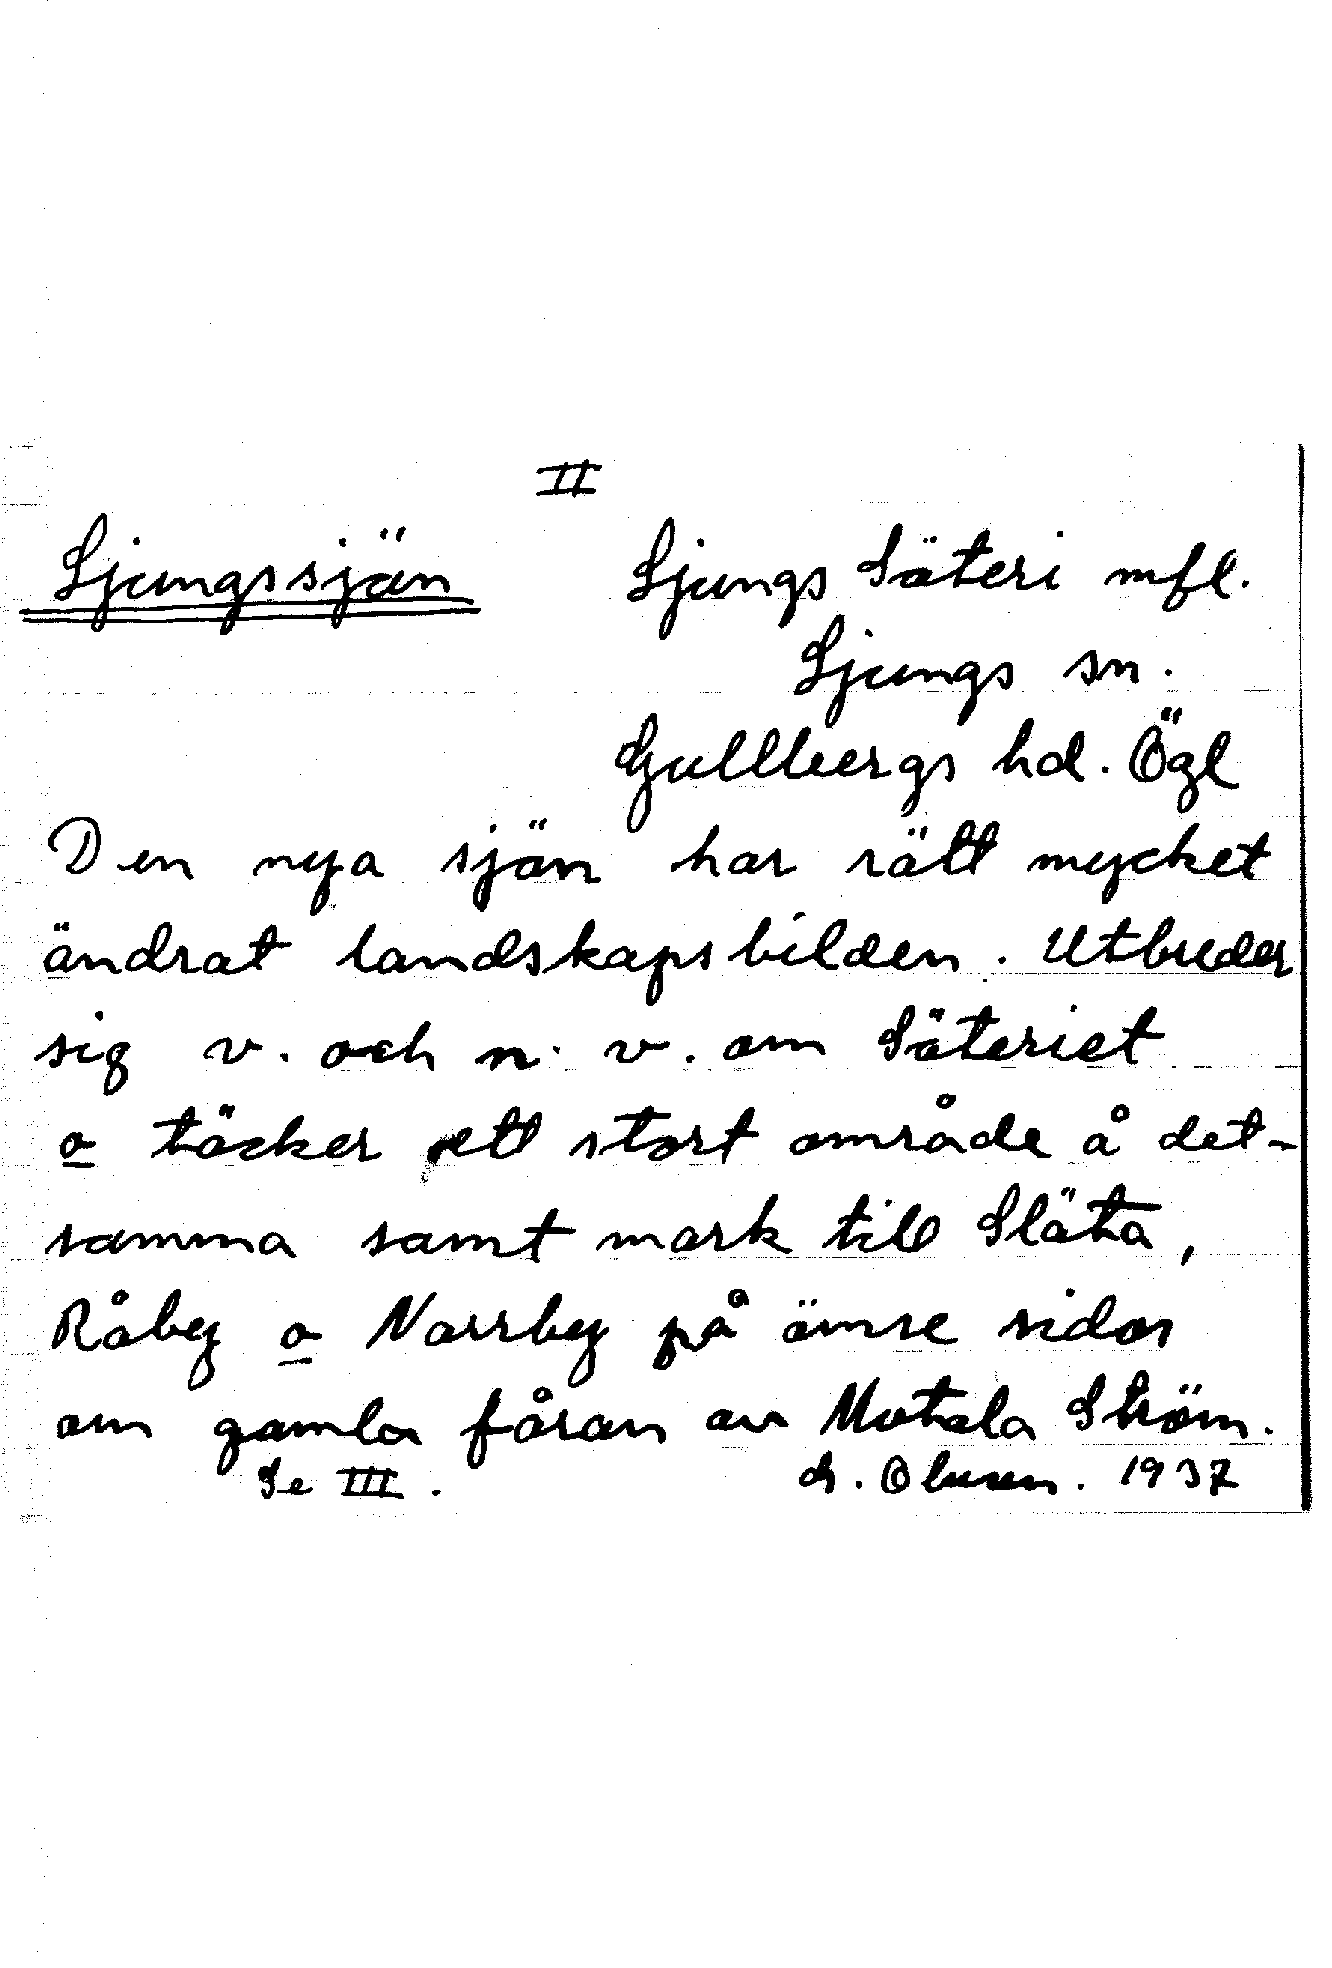 II
Ljungssjön Ljungs Säteri mfl.
Ljungs sn.
Gullbergs hd. Ögl
Den nya sjön har rätt mycket
ändrat landskapsbilden. Utbreder
sig v. och n. v. om Säteriet
o täcker ett stort område å det-
samma samt mark till Släta,
Råby o Norrby på ömse sidor
om gamla fåran av Motala Ström.
Se III. 1937